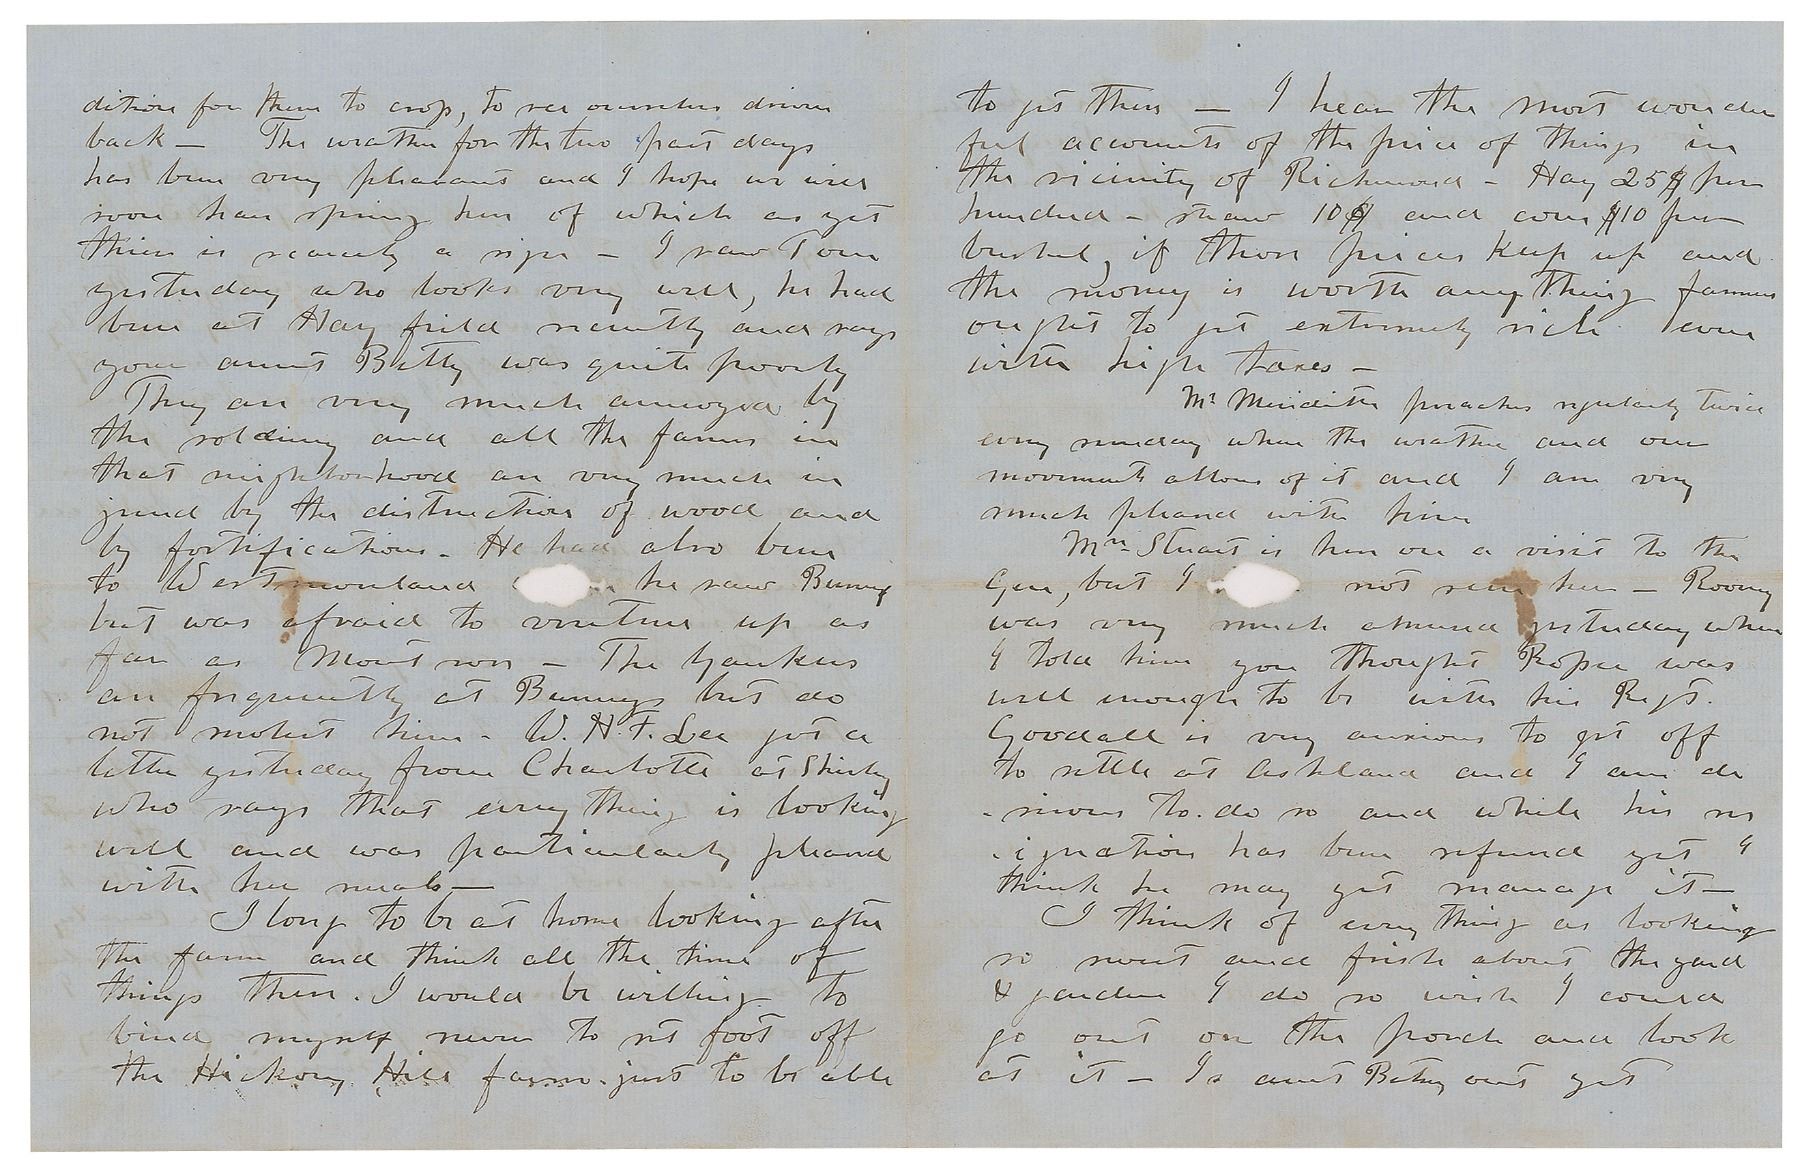 dition for them to crop, to see ourselves driven
back — The weather for the two past days
has been very pleasant and I hope we will
soon have spring here of which as yet
there is scarcely a sign — I saw Tom
yesterday who looks very well, he had
been at Hayfield recently and says
your aunt Betty was quite poorly
They are very much annoyed by
the soldiery and all the farms in
that neighborhood are very much in
jured by the distruction of wood and
by fortifications. He had also been
to Westmoreland he saw Bunny
but was afraid to venture up as
far as Montross — The Yankees
are frequently at Bunnys but do
not molest him. W. H. F. Lee got a
letter yesterday from Charlotte at Shirley
who says that every thing is looking
well and was particularly pleased
with her meals —
I long to be at home looking after
the farm and think all the time of
things there. I would be willing to
bind myself never to set foot off
the Hickory Hill farm. just to be able
to get there — I hear the most wonder
ful accounts of the price of things in
the vicinity of Richmond — Hay 25$ per
hundred — straw 10$ and corn $10 per
bushel, if those prices keep up and
the money is worth anything farmers
ought to get extremely rich even
with high taxes —
Mr Meredith preaches regularly twice
every sunday when the weather and our
movements allow of it and I am very
much pleased with him
Mrs Stuart is here on a visit to the
Gen, but I not seen her — Rooney
was very much amused yesterday when
I told him you thought Rosser was
well enough to be with his Regt.
Goodall is very anxious to get off
to settle at Ashland and I am de
-sirous to do so and while his res
-ignation has been refused yet I
think he may yet manage it —
I think of every thing as looking
so sweet and fresh about the yard
& garden I do so wish I could
go out on the porch and look
at it — Is aunt Betsy out yet